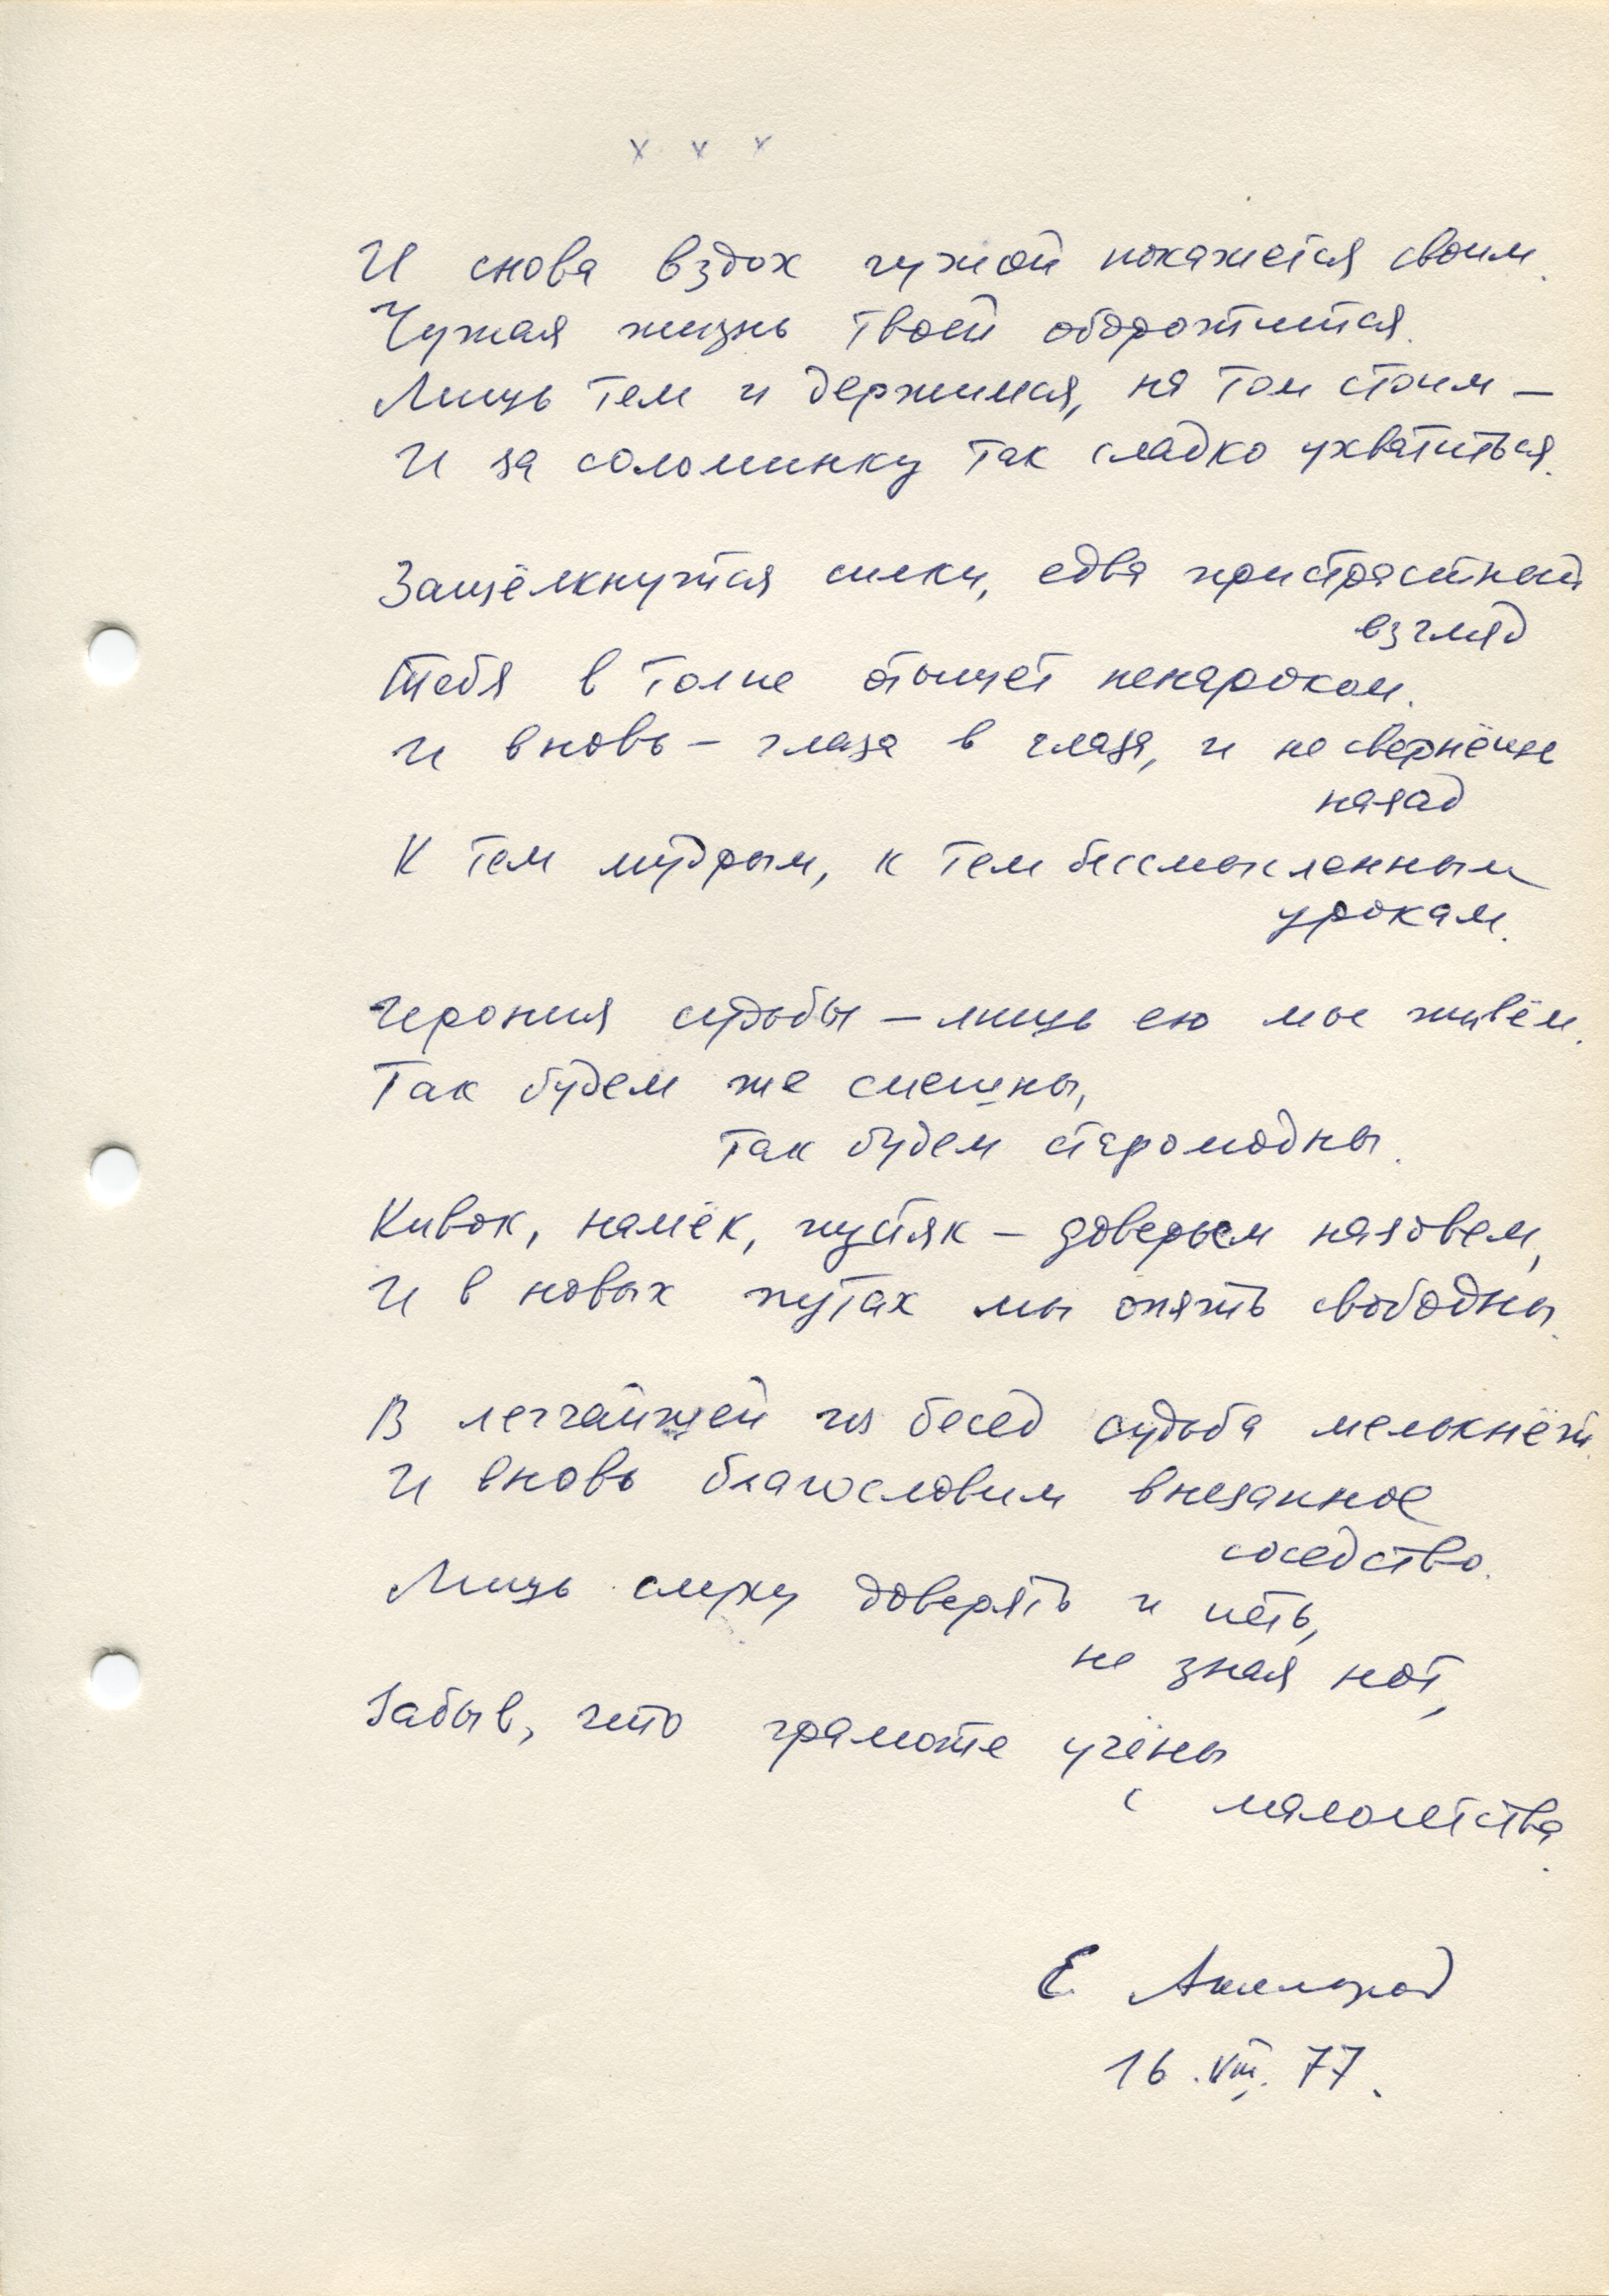 x x x
И снова вздох чужой покажется своим.
Чужая жизнь твоей оборотится.
Лишь тем и держимся, на том стоим —
И за соломинку так сладко ухватиться.
Защёлкнутся силки, едва пристрастный
взгляд
Тебя в толпе отыщет ненароком.
И вновь — глаза в глаза, и не свернёшь
назад
К тем мудрым, к тем бессмысленным
урокам.
Ирония судьбы — лишь ею мы живём.
Так будем же смешны,
так будем старомодны.
Кивок, намёк, пустяк — доверьем назовем,
И в новых путах мы опять свободны.
В легчайшей из бесед судьба мелькнёт.
И вновь благословим внезапное
соседство.
Лишь слуху доверять и петь,
не зная нот,
Забыв, что грамоте учёны
с малолетства.
Е.
16.VIII.77.